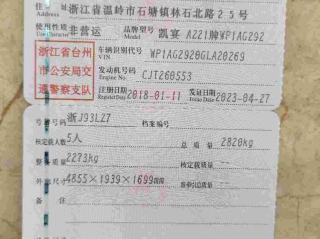 Address 浙江省温岭市石塘镇林石北路25号
使用性质 非营运 品牌型号 凯宴 A221牌WP1AG292
Use Character Model
浙江省台州市公安局交通警察支队
车辆识别代号 WP1AG2920GLA20269
VIN
发动机号码 CJT260553
Engine No.
注册日期 2018-01-11 发证日期 2023-04-27
Register Date Issue Date
号牌号码 浙J93LZ7 档案编号
核定载人数 5人 总质量 2820kg
整备质量 2273kg 核定载质量 --
外廓尺寸 4855×1939×1699